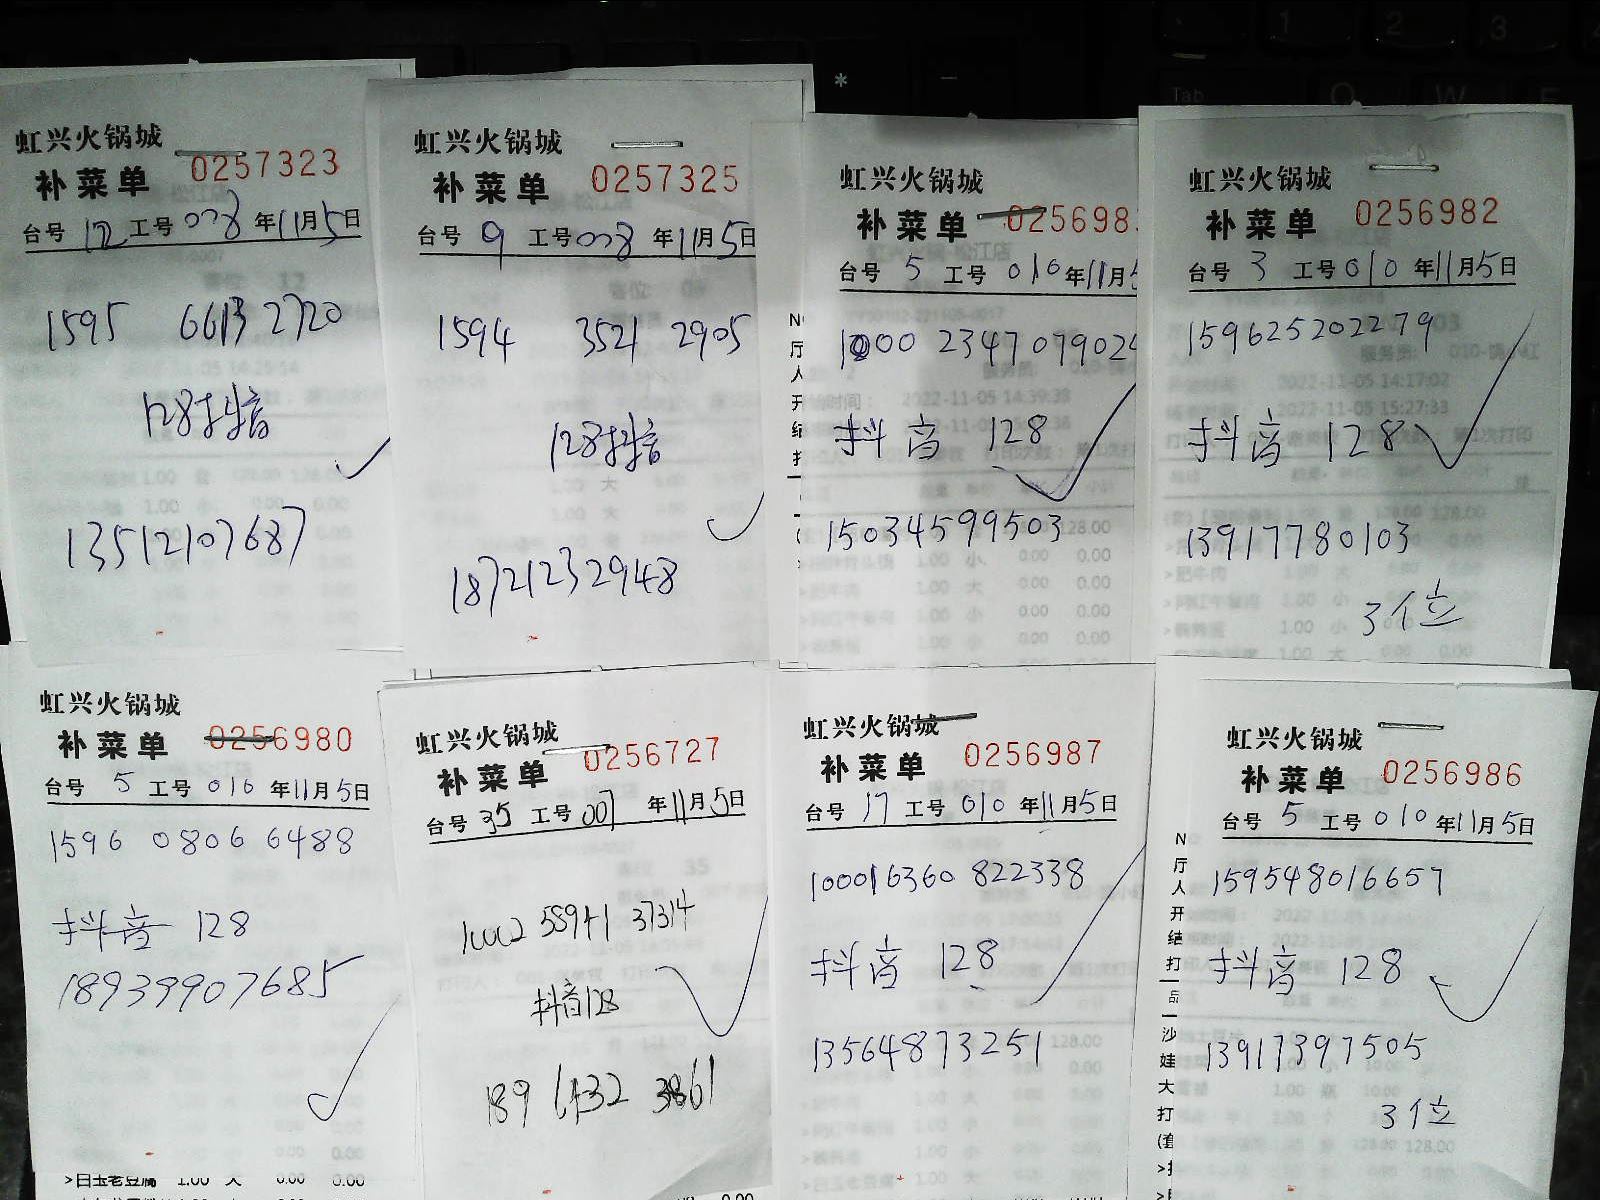 虹兴火锅城
补菜单 0257323
台号 12 工号 008 年11月5日
1595 6613 2720
128抖音
13512107687
虹兴火锅城
补菜单 0257325
台号 9 工号 008 年11月5日
1594 3521 2905
128抖音
18721232948
虹兴火锅城
补菜单 025698
台号 5 工号 010 年11月5
1000 2347079024
抖音 128
15034599503
虹兴火锅城
补菜单 0256982
台号 3 工号 010 年11月5日
159625202279
抖音 128
13917780103
3位
虹兴火锅城
补菜单 0256980
台号 5 工号 010 年11月5日
1596 0806 6488
抖音 128
18939907685
>白玉老豆腐 1.00 大 0.00 0.00
虹兴火锅城
补菜单 0256727
台号 35 工号 007 年11月5日
10002 58941 37314
抖音128
189 1432 3861
虹兴火锅城
补菜单 0256987
台号 17 工号 010 年11月5日
100016360 822338
抖音 128
13564873251
虹兴火锅城
补菜单 0256986
台号 5 工号 010 年11月5日
159548016657
抖音 128
13917397505
3位